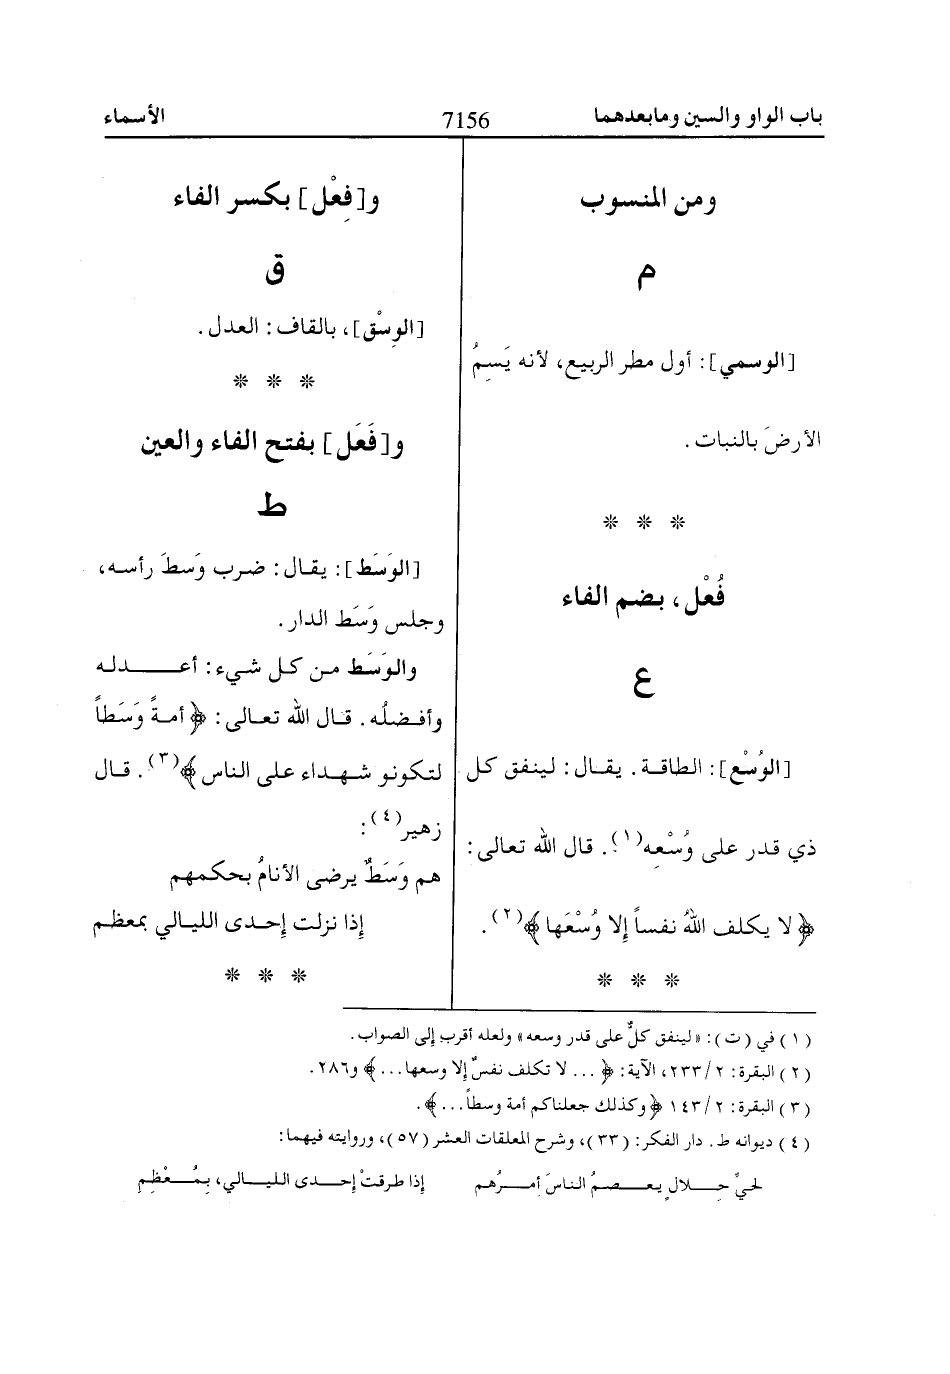 باب الواو والسين ومابعدهما
7156
الأسماء
ومن المنسوب
م
[الوسمي]: أول مطر الربيع، لأنه يَسِمُ
الأرضَ بالنبات.
* * *
فُعْل، بضم الفاء
ع
[الوُسْع]: الطاقة. يقال: لينفق كل
ذي قدر على وُسْعِه(١). قال الله تعالى:
﴿لا يكلف اللهُ نفساً إلا وُسْعَها﴾(٢).
* * *
و[فِعْل] بكسر الفاء
ق
[الوِسْق]، بالقاف: العدل.
* * *
و[فَعَل] بفتح الفاء والعين
ط
[الوَسَط]: يقال: ضرب وَسطَ رأسه،
وجلس وَسَط الدار.
والوَسَط من كل شيء: أعدله
وأفضلُه. قال الله تعالى: ﴿أمةً وَسَطاً
لتكونو شهداء على الناس﴾(٣). قال
زهير(٤):
هم وَسَطٌ يرضى الأنامُ بحكمهم
إذا نزلت إحدى الليالي بمعظم
* * *
(١) في (ت): «لينفق كلٌّ على قدر وسعه» ولعله أقرب إلى الصواب.
(٢) البقرة: ٢/ ٢٣٣، الآية: ﴿... لا تكلف نفسٌ إلا وسعها...﴾ و٢٨٦.
(٣) البقرة: ٢/ ١٤٣ ﴿وكذلك جعلناكم أمة وسطاً...﴾.
(٤) ديوانه ط. دار الفكر: (٣٣)، وشرح المعلقات العشر (٥٧)، وروايته فيهما:
لحيٍّ حِلالٍ يعصمُ الناسَ أمرُهم إذا طرقتْ إحدى الليالي، بِمُعْظِمِ